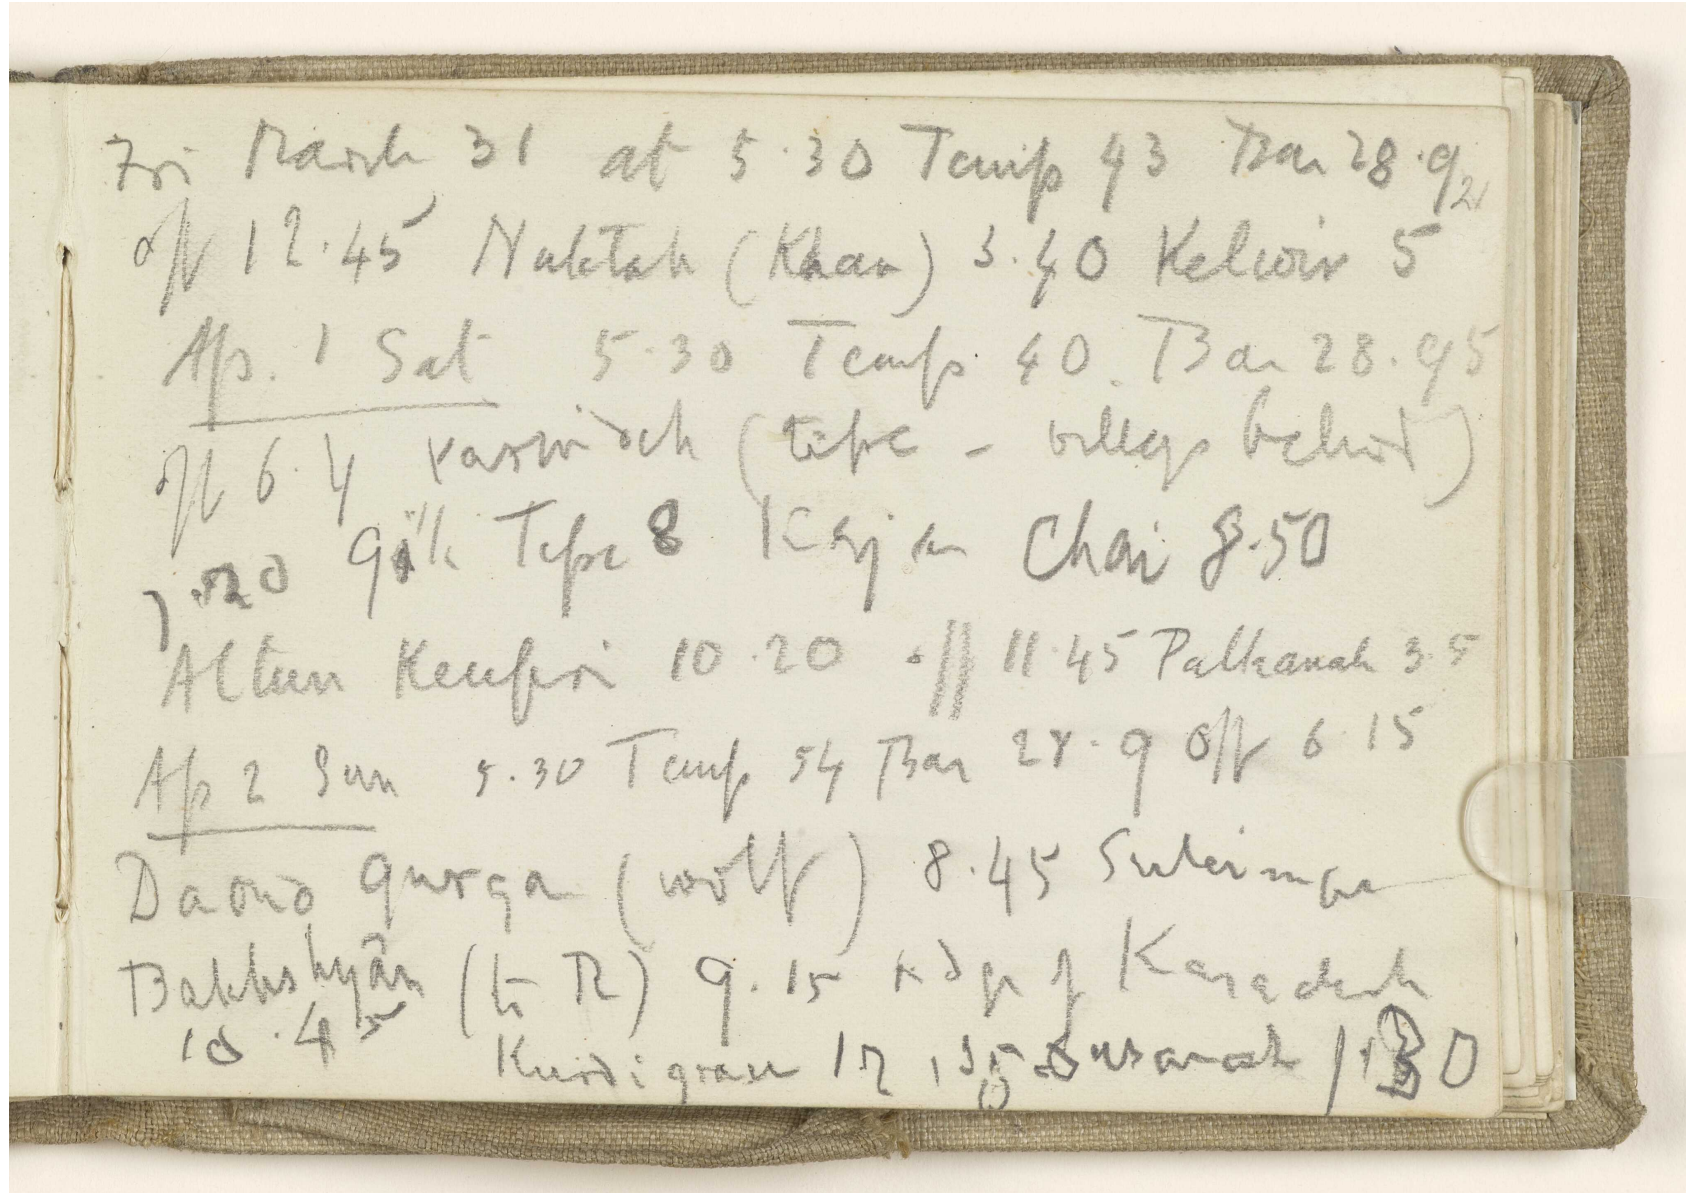 Fri March 31 at 5.30 Temp 43 Bar 28.92
off 12.45 Naktah (Khan) 3.40 Kelwir 5
Ap. 1 Sat 5.30 Temp 40. Bar 28.95
off 6.4 Yarwideh (tepe - village behind)
7.20 Gök Tepe 8 Chai 8.50
Altun Keupri 10.20 off 11.45 Palkanah 3.5
Ap 2 Sun 5.30 Temp 54 Bar 28.9 Off 6.15
Daoud gurga (wolf) 8.45
Bakhshyân (to R) 9.15 edge of Karadagh
10.45 Kurdi grau 12